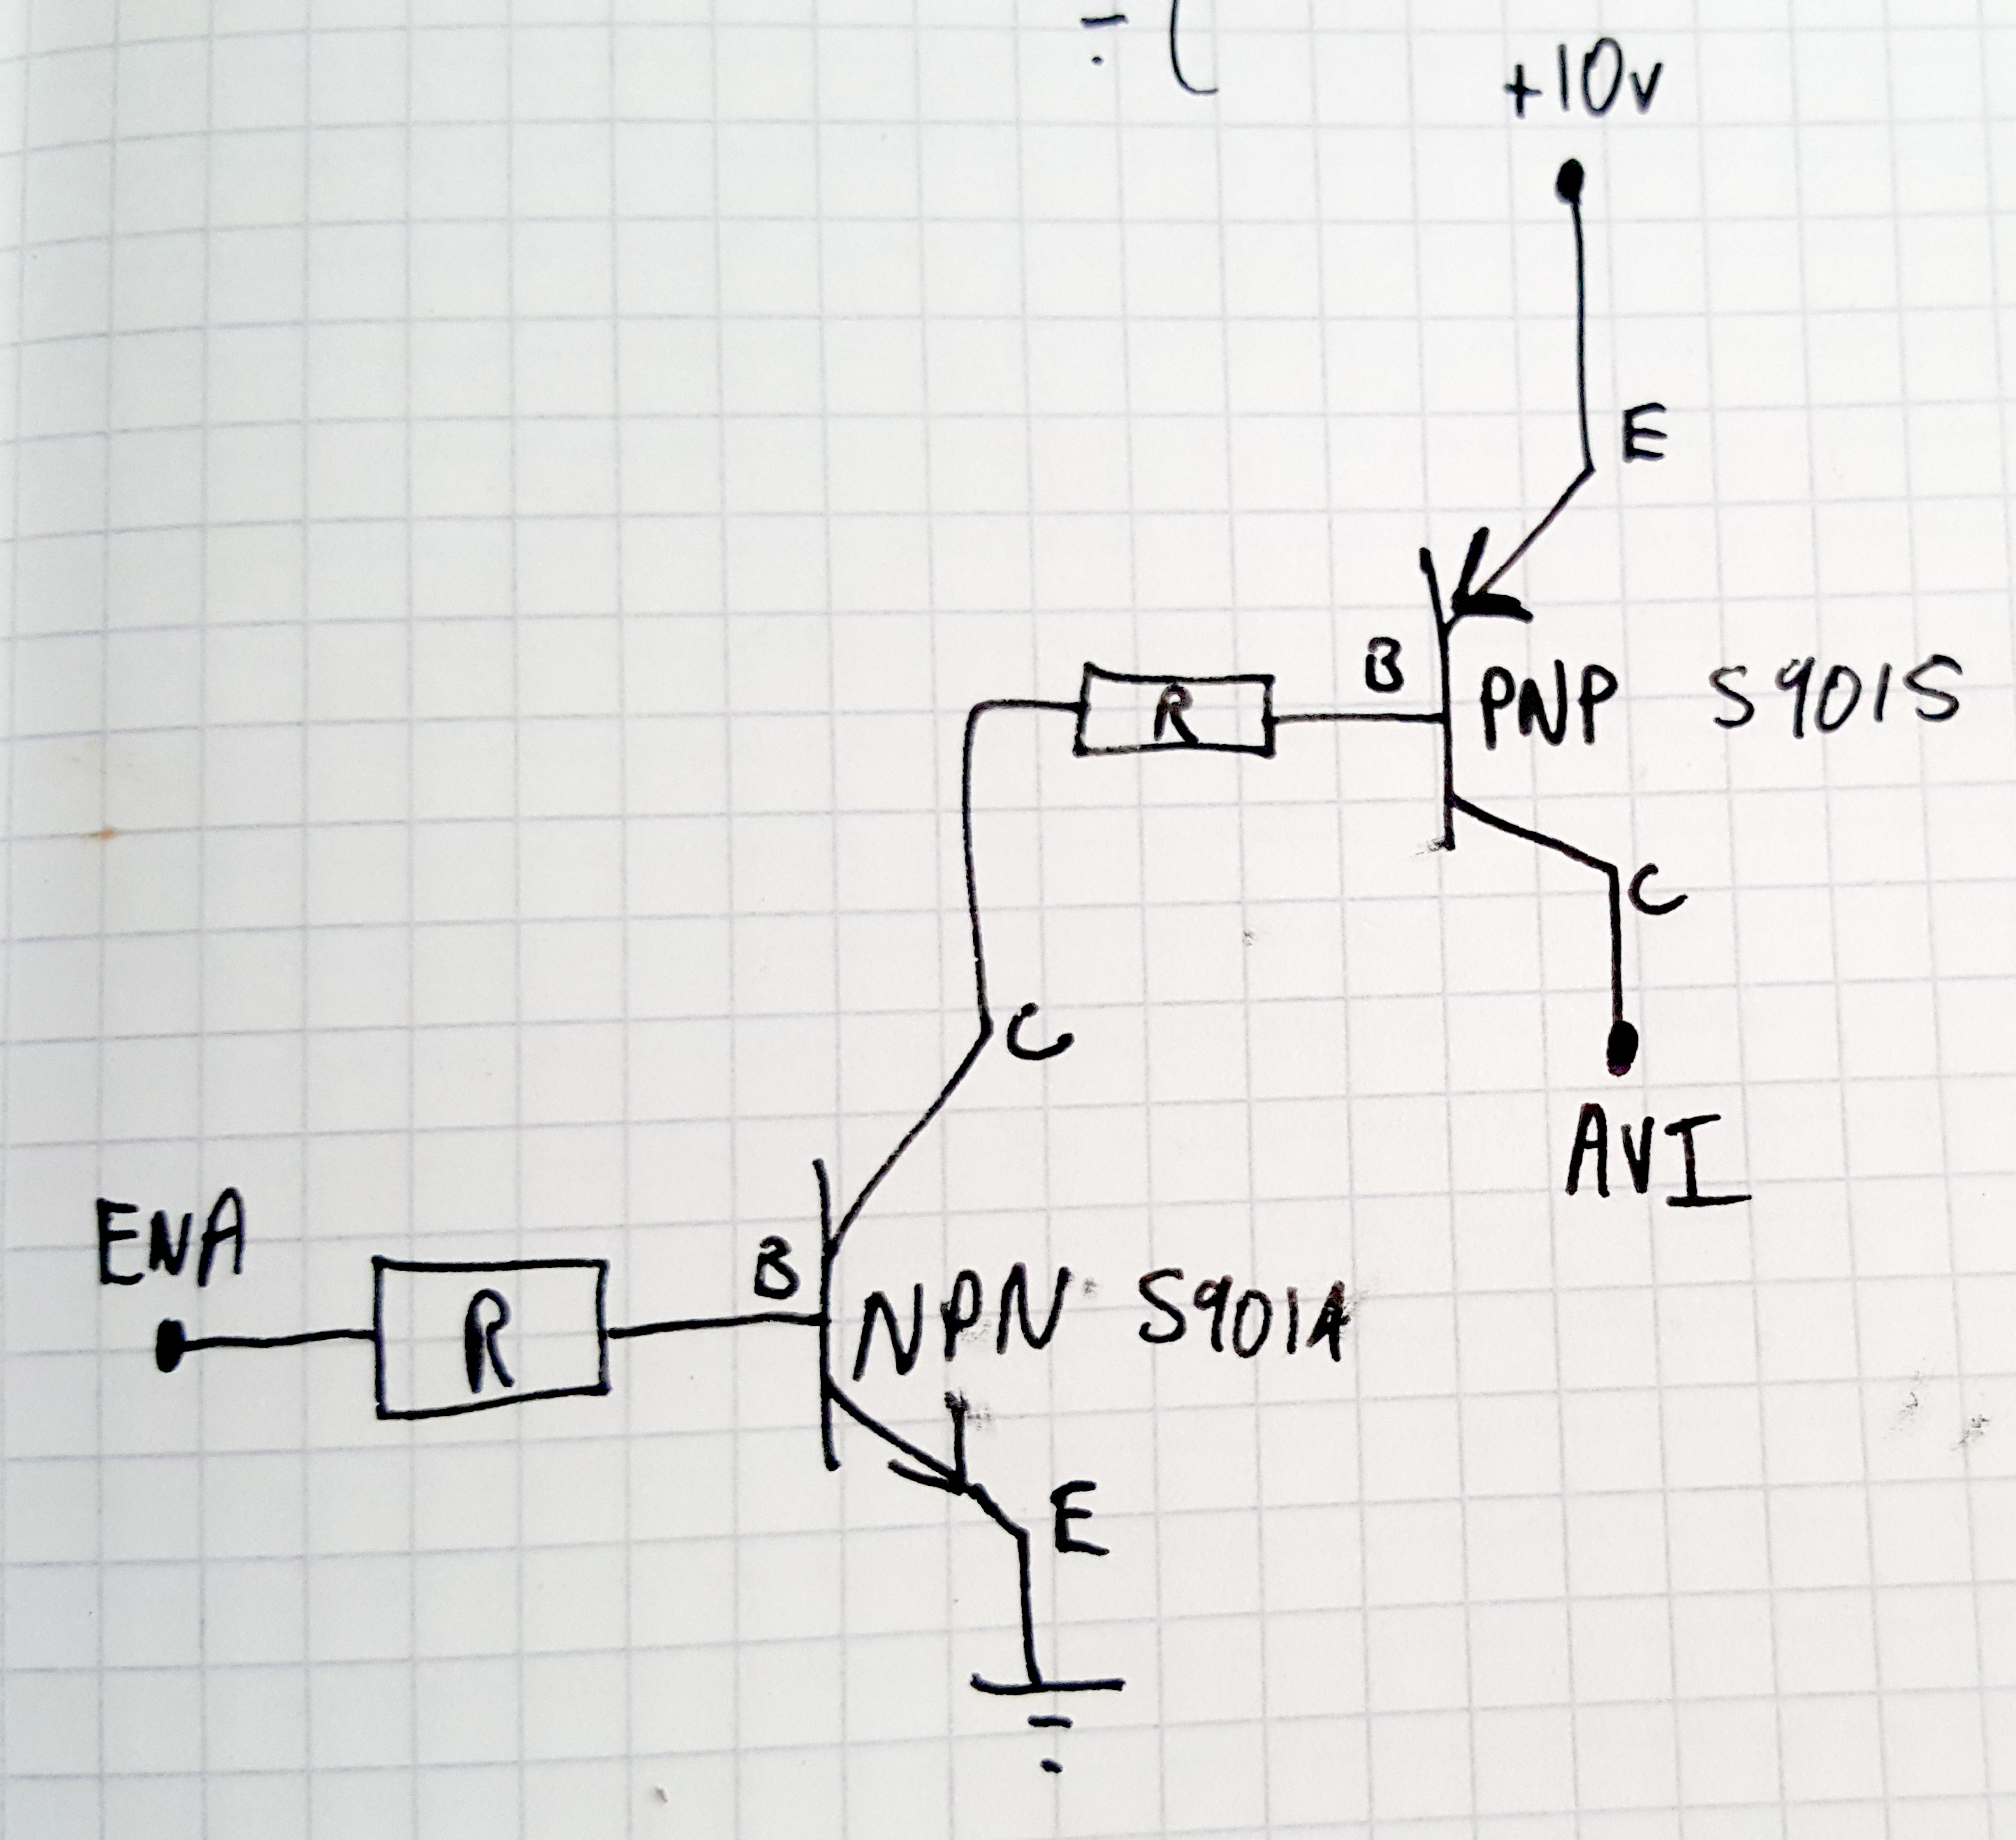 +10v
E
B
R
PNP S9015
C
C
AVI
ENA
B
R
NPN S901A
E